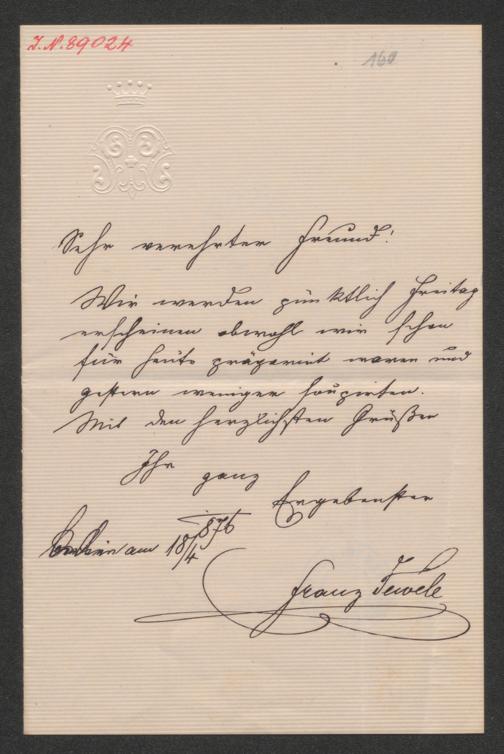 J.N. 89024
160
Sehr verehrter Freund!
Wir werden pünktlich Freitag
erscheinen obwohl wir schon
für heute präparirt waren und
gestern weniger soupirten.
Mit den herzlichsten Grüßen
Ihr ganz
Ergebenster
am 18/4 876
Franz Tewele